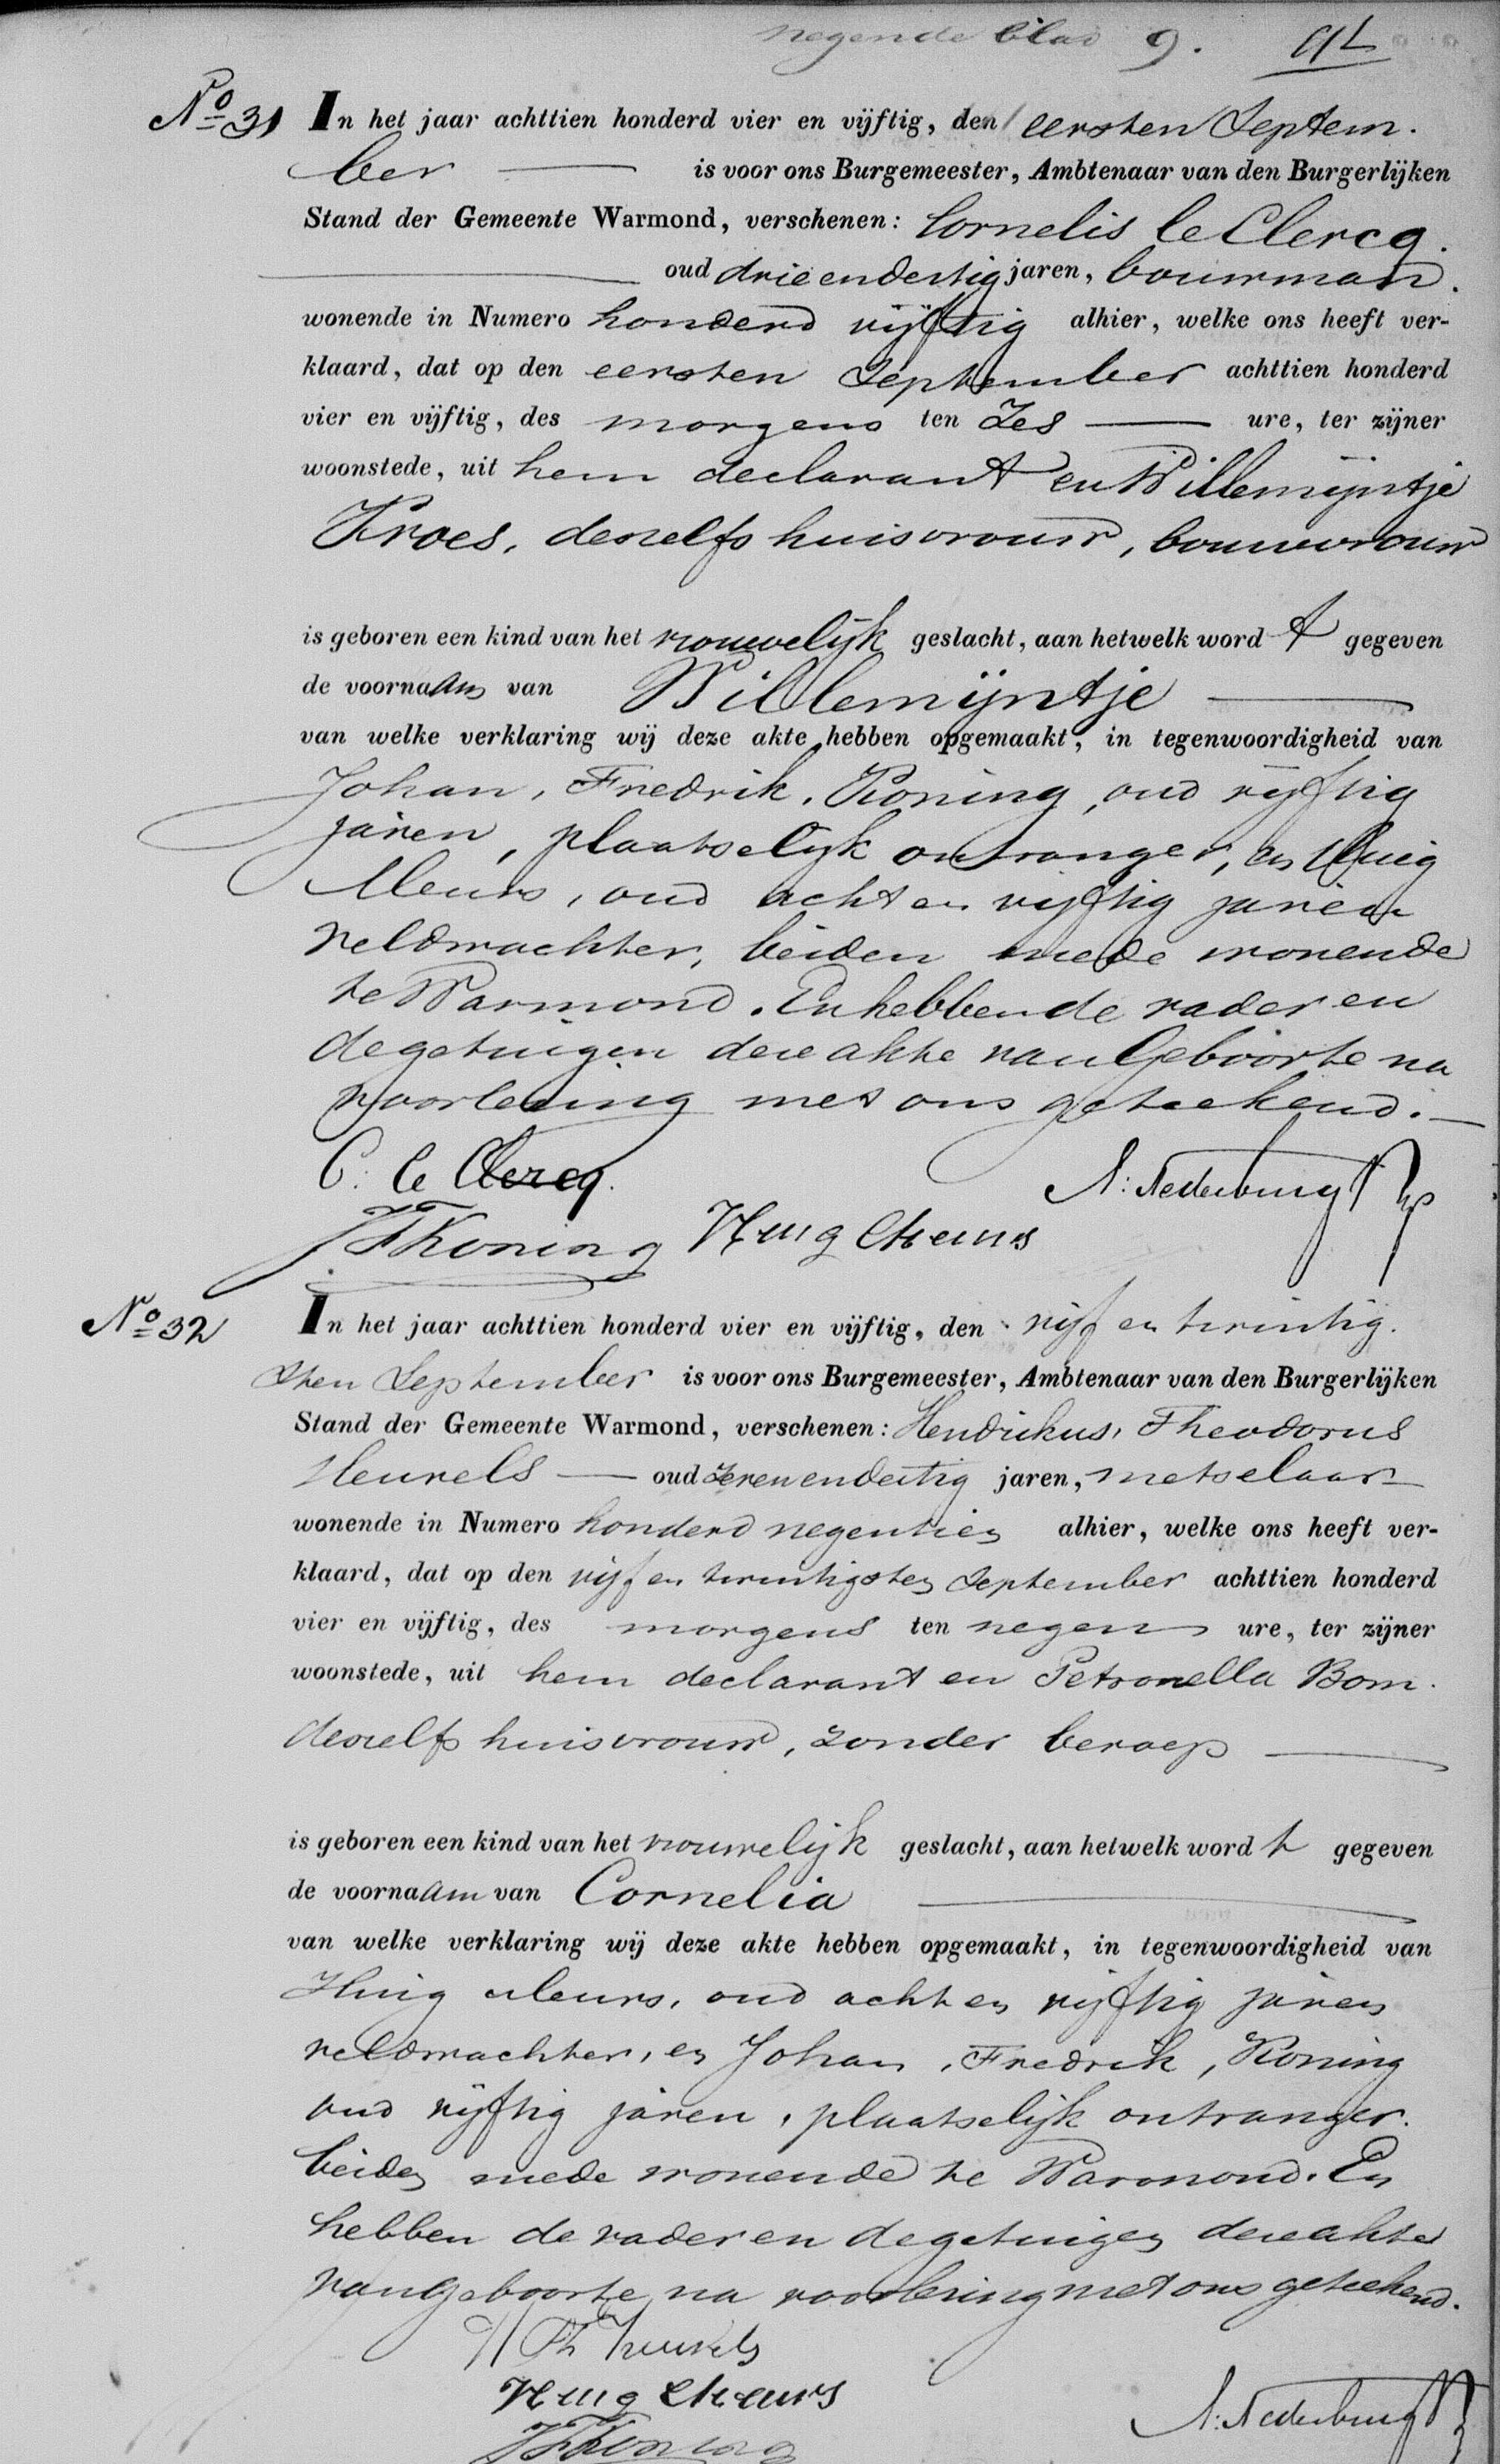 negende blad 9.
No 31 In het jaar achttien honderd vier en vijftig, den eersten Septem-
ber — is voor ons Burgemeester, Ambtenaar van den Burgerlijken
Stand der Gemeente Warmond, verschenen: Cornelis le Clercq.
— oud drieendertig jaren, bouwman.
wonende in Numero honderd vijftig alhier, welke ons heeft ver-
klaard, dat op den eersten September achttien honderd
vier en vijftig, des morgens ten Zes — ure, ter zijner
woonstede, uit hem declarant en Willemijntje
Kroes, deszelfs huisvrouw, bouwvrouw
is geboren een kind van het vrouwelijk geslacht, aan hetwelk word t gegeven
de voornaam van Willemijntje —
van welke verklaring wij deze akte hebben opgemaakt, in tegenwoordigheid van
Johan, Fredrik, Koning, oud vijftig
jaren, plaatselijk ontvanger, en Huig
Meurs, oud acht en vijftig jaren
veldwachter, beiden mede wonende
te Warmond. En hebben de vader en
de getuigen deze akte van Geboorte na
voorlezing met ons geteekend. —
C. le Clercq. A: Nederburgh
JF Koning Huig Meurs
No 32 In het jaar achttien honderd vier en vijftig, den vijf en twintig-
sten September is voor ons Burgemeester, Ambtenaar van den Burgerlijken
Stand der Gemeente Warmond, verschenen: Hendrikus, Theodorus
Heuvels — oud zevenendertig jaren, metselaar
wonende in Numero honderd negentien alhier, welke ons heeft ver-
klaard, dat op den vijf en twintigsten September achttien honderd
vier en vijftig, des morgens ten negen ure, ter zijner
woonstede, uit hem declarant en Petronella Bom.
deszelfs huisvrouw, zonder beroep —
is geboren een kind van het vrouwelijk geslacht, aan hetwelk word t gegeven
de voornaam van Cornelia —
van welke verklaring wij deze akte hebben opgemaakt, in tegenwoordigheid van
Huig Meurs, oud acht en vijftig jaren
veldwachter, en Johan, Fredrik, Koning
oud vijftig jaren, plaatselijk ontvanger.
beiden mede wonende te Warmond. En
hebben de vader en de getuigen deze akte
van Geboorte na voorlezing met ons geteekend.
H Th Heuvels
Huig Meurs A: Nederburgh
JF Koning